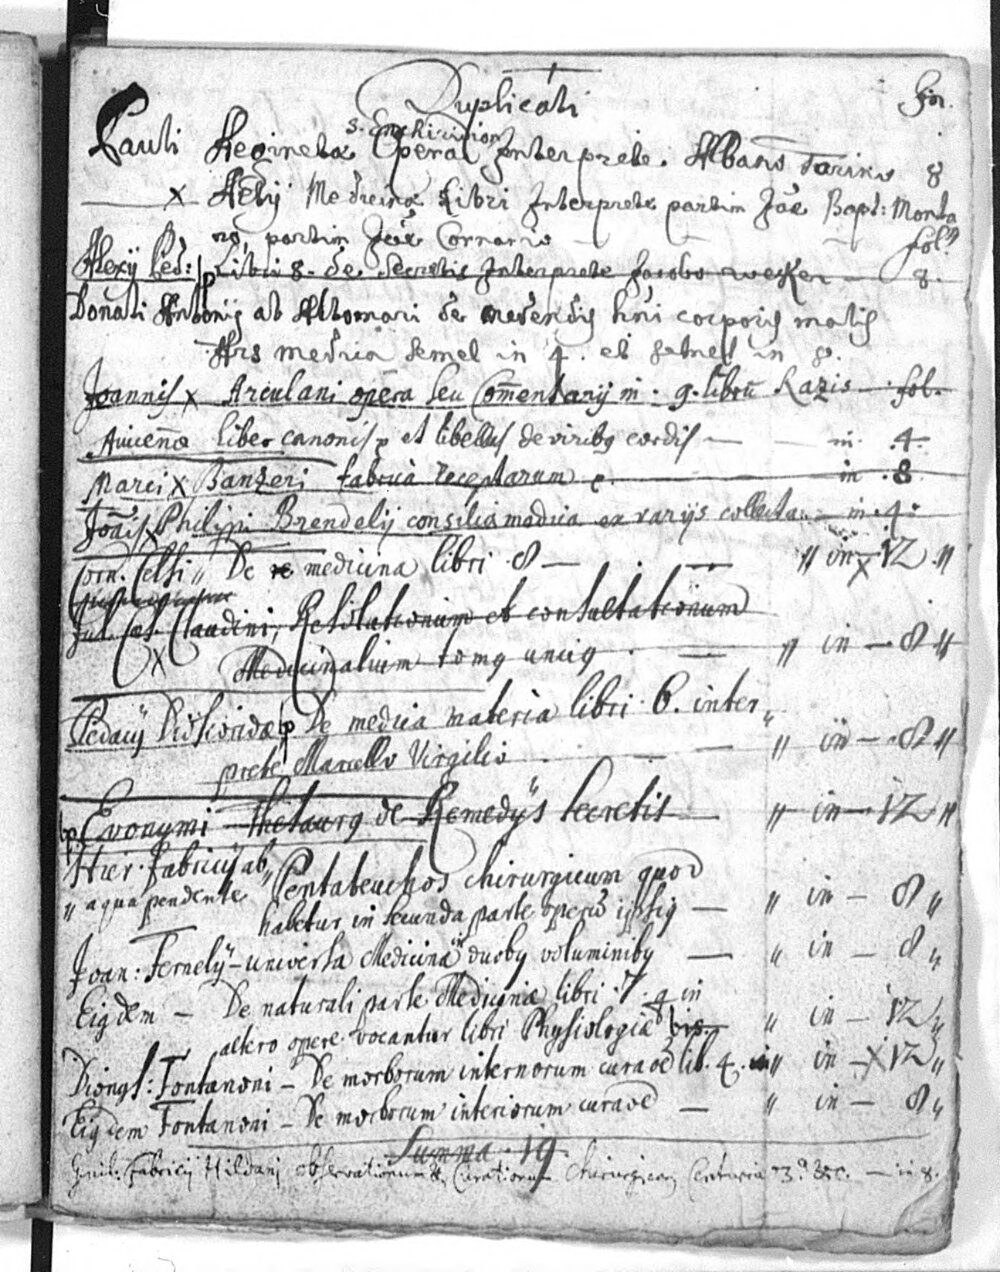 Duplicati
for.
s. Enchiridion
Pauli Aeginetæ Opera Interprete Albano Torino 8
x Aëtij Medicinæ Libri Interprete partim Jõe Bapt: Monta
no, partim Jõe Cornario — fol.
Alexij Ped: p Libri 8. de Secretis Interprete Jacobo Wecker — 8.
Donati Antonij ab Altomari de medendis hũi corporis malis
Ars medica semel in 4. et semel in 8.
Joannis x Arculani opera seu Com̃entarij in . 9. librũ Razis fol.
Auicennæ liber canonis p et libellus de viribq cordis — in 4.
Marci x Banzeri fabrica receptarum in 8
Joãis x Philippi Brendelij consilia medica ex varijs collecta in 4.
Corn. Celsi „ De re medicina libri 8 — „ in x 12 „
Jul. Cæs. Claudini, Resolutionum et consultationum
x Medicinalium tomq unicq — „ in — 8 „
Pedacij Dioscoridæ p De medica materia libri 6. inter „
prete Marcello Virgilio — „ in — 8 „
p Evonymi Thesaurq de Remedijs secretis — „ in — 12 „
Hier. Fabricij ab „ Pentateuchos chirurgicum quod
„ aqua pendente habetur in secunda parte operũ ipsiq — „ in — 8 „
Joan: Fernelij — universa Medicina in duobq voluminibq — „ in — 8 „
Eiqdem — De naturali parte Medicinæ libri 7. 4 in
altero opere vocantur libri Physiologiæ bis. — „ in — 12 „
Dionys: Fontanoni — De morborum internorum curaõe lib. 4. „ in — x 12 „
Eiqdem Fontanoni — De morborum interiorum curaõe — „ in — 8 „
Summa 19
Guil: Fabricij Hildani observationum & Curationum Chirurgicarũ Centuria 3.a &c. — in 8.